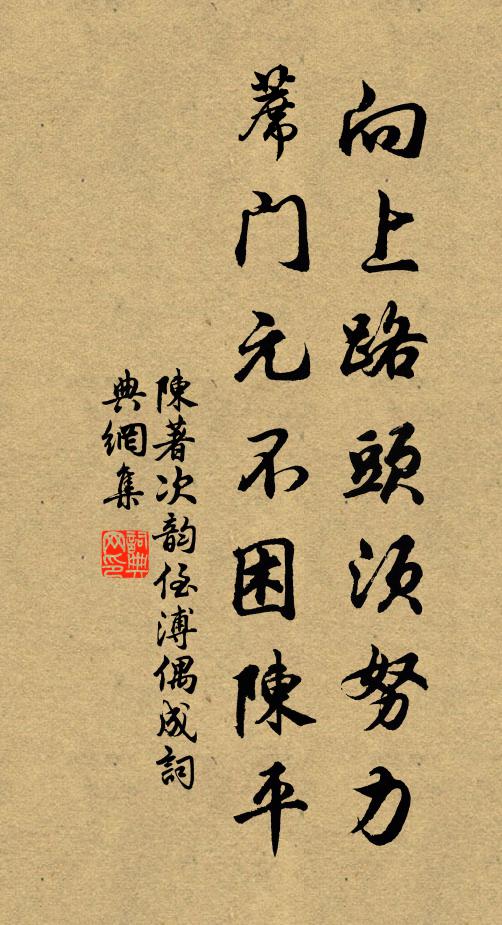 向上路頭須努力
蓆門元不困陳平
陳著次韵侄溥偶成詞
典網集
詞典
网印